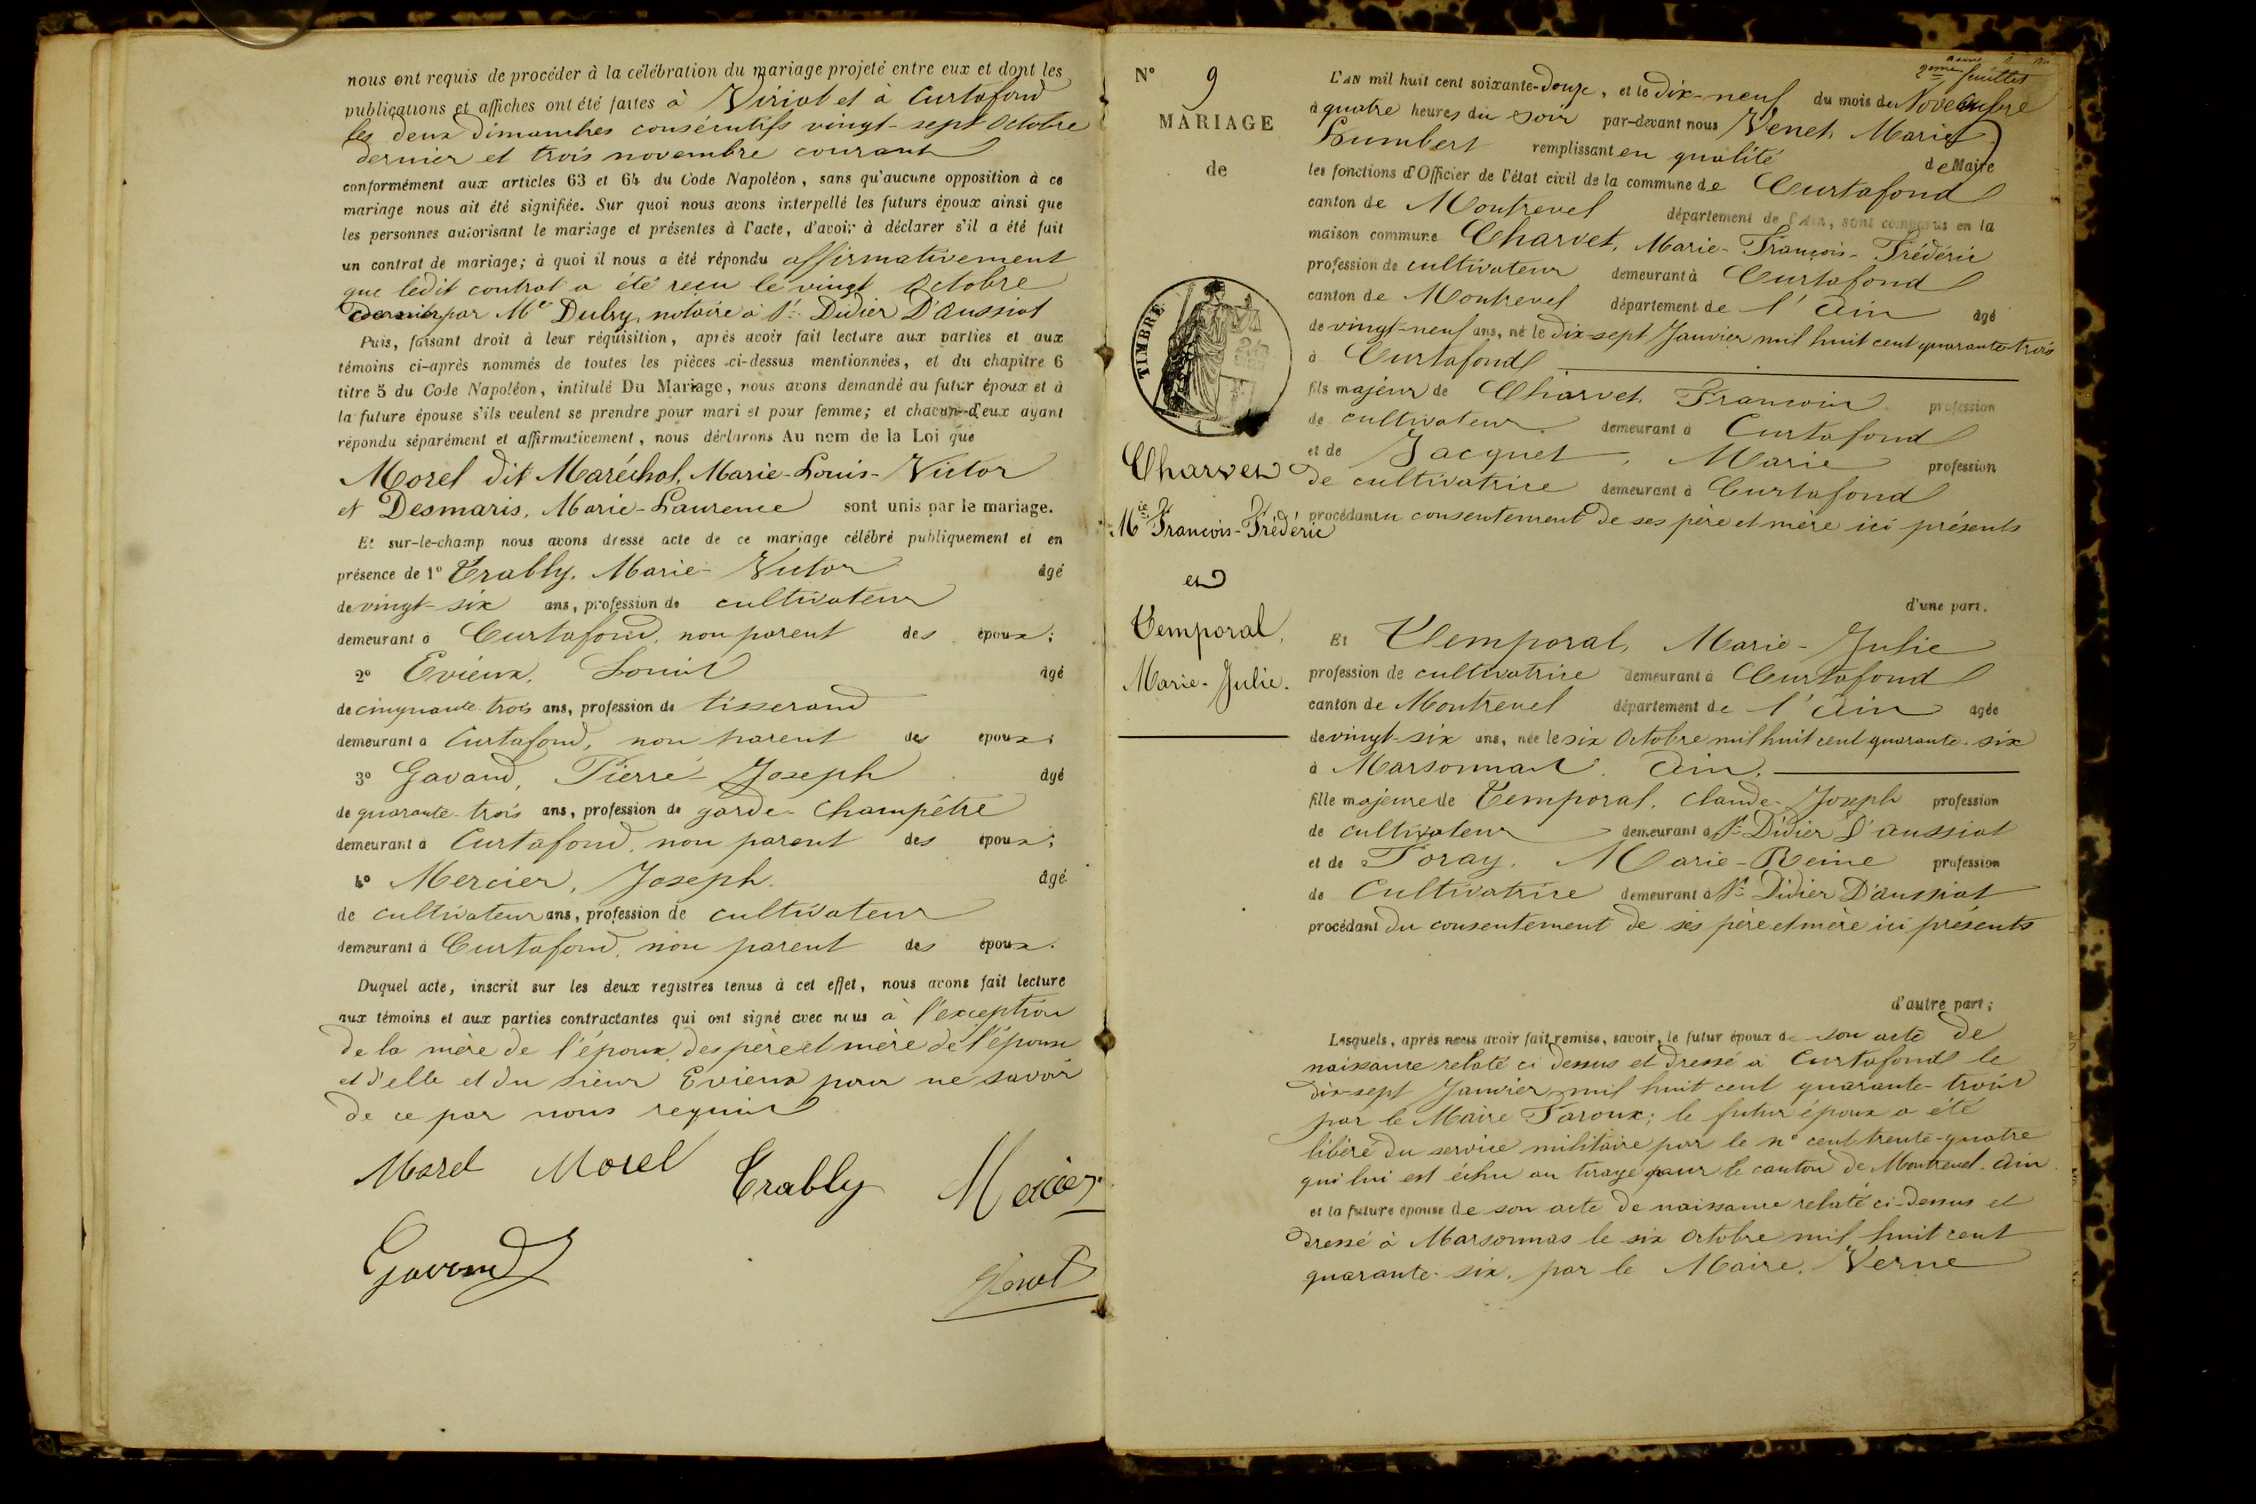 nous ont requis de procéder à la célébration du mariage projeté entre eux et dont les
publications et affiches ont été faites à Viriat et à Curtafond
les deux dimanches consécutifs vingt-sept Octobre
dernier et trois novembre courant
conformément aux articles 63 et 64 du Code Napoléon, sans qu'aucune opposition à ce
mariage nous ait été signifiée. Sur quoi nous avons interpellé les futurs époux ainsi que
les personnes autorisant le mariage et présentes à l'acte, d'avoir à déclarer s'il a été fait
un contrat de mariage; à quoi il nous a été répondu affirmativement
que ledit contrat a été reçu le vingt Octobre
dernier par Me Dubry, notaire à St Didier D'aussiat
Puis, faisant droit à leur réquisition, après avoir fait lecture aux parties et aux
témoins ci-après nommés de toutes les pièces ci-dessus mentionnées, et du chapitre 6
titre 5 du Code Napoléon, intitulé Du Mariage, nous avons demandé au futur époux et à
la future épouse s'ils veulent se prendre pour mari et pour femme; et chacun d'eux ayant
répondu séparément et affirmativement, nous déclarons Au nom de la Loi que
Morel dit Maréchal, Marie-Louis-Victor
et Desmaris, Marie-Laurence sont unis par le mariage.
Et sur-le-champ nous avons dressé acte de ce mariage célébré publiquement et en
présence de 1º Trably, Marie-Victor âgé
de vingt-six ans, profession de cultivateur
demeurant à Curtafond, non parent des époux;
2º Evieux, Louis âgé
de cinquante-trois ans, profession de tisserand
demeurant à Curtafond, non parent des époux;
3º Gavand, Pierre-Joseph âgé
de quarante-trois ans, profession de garde-Champêtre
demeurant à Curtafond, non parent des époux;
4º Mercier, Joseph. âgé
de cultivateur ans, profession de cultivateur
demeurant à Curtafond, non parent des époux.
Duquel acte, inscrit sur les deux registres tenus à cet effet, nous avons fait lecture
aux témoins et aux parties contractantes qui ont signé avec nous à l'exception
de la mère de l'époux, des père et mère de l'épouse
et d'elle et du sieur Evieux pour ne savoir
de ce par nous requis
Morel Morel Trably Mercier
Gavand Venet
2eme feuillet
Nº 9
MARIAGE
de
TIMBRE
Charvet
Mie François-Frédéric
et
Temporal,
Marie-Julie.
L'AN mil huit cent soixante-Douze, et le dix-neuf du mois de Novembre
à quatre heures du soir par-devant nous Venet, Marie
Humbert remplissant en qualité de Maire
les fonctions d'Officier de l'état civil de la commune de Curtafond
canton de Montrevel département de l'Ain, sont comparus en la
maison commune Charvet, Marie-François-Frédéric
profession de cultivateur demeurant à Curtafond
canton de Montrevel département de l'ain âgé
de vingt-neuf ans, né le dix-sept Janvier mil huit cent quarante-trois
à Curtafond
fils majeur de Charvet, François profession
de cultivateur demeurant à Curtafond
et de Jacquet, Marie profession
de cultivatrice demeurant à Curtafond
procédant du consentement de ses père et mère ici présents
d'une part.
Et Temporal, Marie-Julie
profession de cultivatrice demeurant à Curtafond
canton de Montrevel département de l'ain agée
de vingt-six ans, née le six Octobre mil huit cent quarante-six
à Marsonnas. Ain.
fille majeure de Temporal, Claude-Joseph profession
de cultivateur demeurant à St Didier D'aussiat
et de Poray, Marie-Reine profession
de Cultivatrice demeurant à St Didier D'aussiat
procédant du consentement de ses père et mère ici présents
d'autre part;
Lesquels, après nous avoir fait remise, savoir, le futur époux de son acte de
naissance relaté ci dessus et dressé à Curtafond le
dix-sept Janvier mil huit cent quarante-trois
par le Maire Paroux; le futur époux a été
libéré du service militaire par le nº cent trente-quatre
qui lui est échu au tirage pour le canton de Montrevel. Ain
et la future épouse de son acte de naissance relaté ci-dessus et
dressé à Marsonnas le six Octobre mil huit cent
quarante-six, par le Maire, Verne